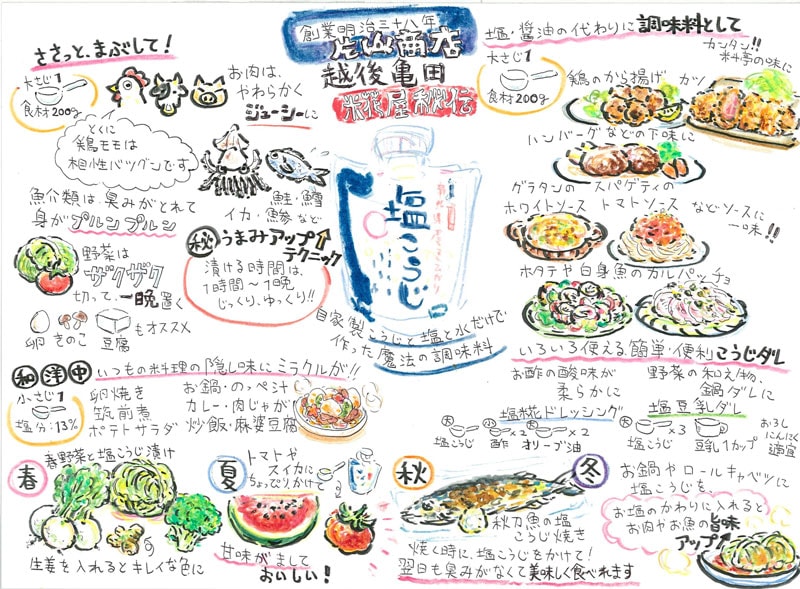 創業明治三十八年
片山商店
越後亀田
糀屋秘伝
塩こうじ
自家製こうじと塩と水だけで
作った魔法の調味料
ささっと、まぶして!
大さじ1
食材200g
お肉は、
やわらかく
ジューシーに
とくに
鶏モモは
相性バツグンです
魚介類は臭みがとれて
身がプルンプルン
鮭・鱈
イカ・魚参など
野菜は
ザクザク
切って、一晩置く
卵 きのこ 豆腐 もオススメ
㊙うまみアップ
テクニック
漬ける時間は、
1時間~1晩
じっくり、ゆっくり!!
塩・醤油の代わりに調味料として
大さじ1
食材200g
カンタン!!
料亭の味に
鶏のから揚げ カツ
ハンバーグなどの下味に
グラタンの スパゲティの
ホワイトソース トマトソース などソースに
一味!!
ホタテや白身魚のカルパッチョ
いろいろ使える簡単・便利こうじダレ
お酢の酸味が
柔らかに
塩糀ドレッシング
大 小×2 大×2
塩こうじ 酢 オリーブ油
野菜の和え物、
鍋ダレに
塩豆乳ダレ
大×3
塩こうじ 豆乳1カップ
おろし
にんにく
適宜
和洋中 いつもの料理の隠し味にミラクルが!!
小さじ1
塩分:13%
卵焼き
筑前煮
ポテトサラダ
お鍋・のっぺ汁
カレー・肉じゃが
炒飯・麻婆豆腐
春
春野菜と塩こうじ漬け
生姜を入れるとキレイな色に
夏
トマトや
スイカに
ちょっぴりかけて
甘味がまして
おいしい!
秋
秋刀魚の塩
こうじ焼き
焼く時に、塩こうじをかけて!
翌日も臭みがなくて美味しく食べれます
冬
お鍋やロールキャベツに
塩こうじを、
お塩のかわりに入れると
お肉やお魚の旨味
アップ